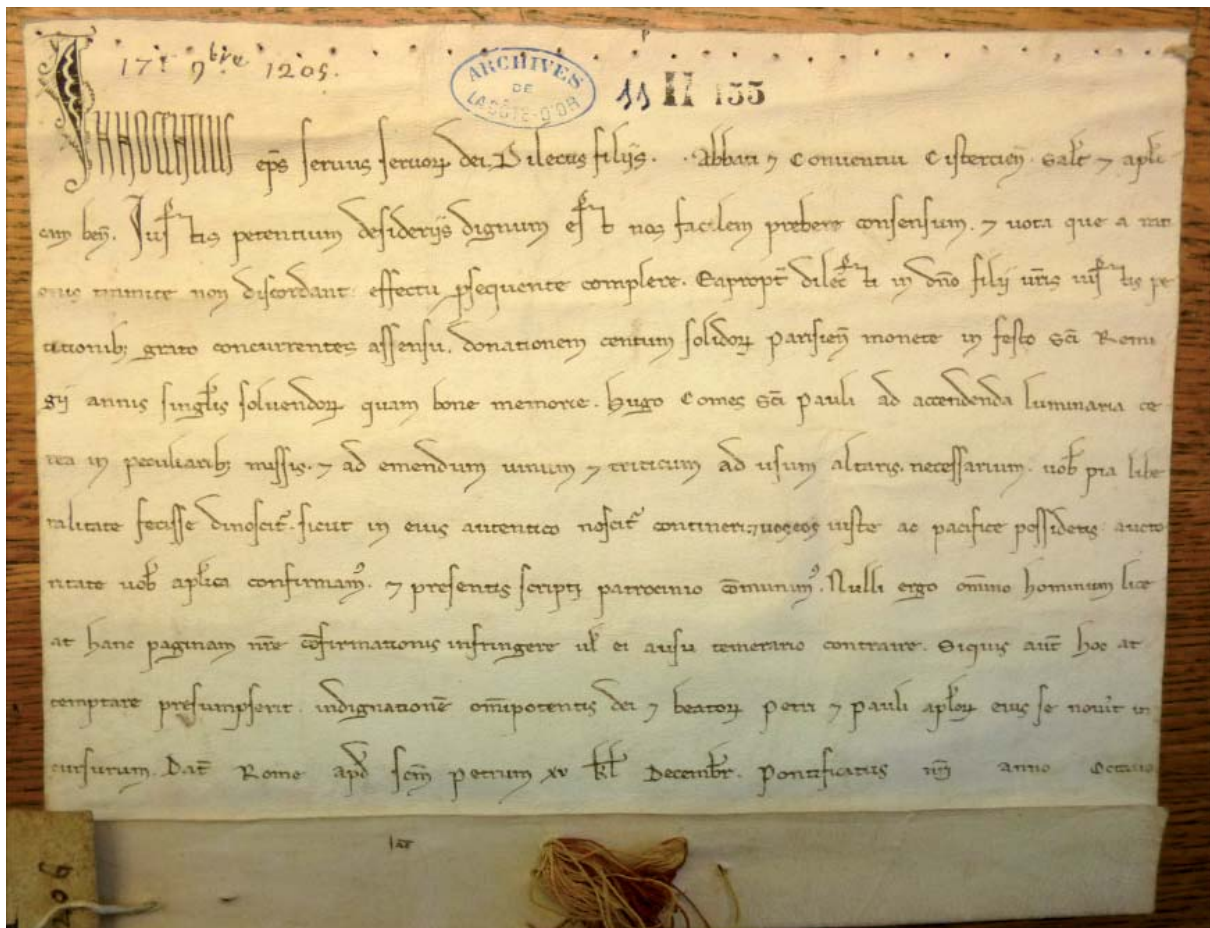 17 9bre 1205.
ARCHIVES DE LA CÔTE-D'OR
11 H 155
INNOCENTIUS ep̄s servus servoꝝ dei. Dilectis filiis. Abbati ⁊ Conventui Cistercień. Salt̄ ⁊ apl̄i
cam beń. Iustis petentium desideriis dignum est nos facilem prebere consensum. ⁊ vota que a rati
onis tramite non discordant effectu ꝓsequente complere. Eapropt̄ dilecti in dn̄o filii vr̄is iustis pe
titionibꝫ grato concurrentes assensu. donationem centum solidoꝝ parisień monete in festo sc̄i Remi
gii annis singl̄is solvendoꝝ quam bone memorie. Hugo Comes sc̄i Pauli ad accendenda luminaria ce
rea in peculiaribꝫ missis. ⁊ ad emendum vinum ⁊ triticum ad usum altaris necessarium. vob̄ pia libe
ralitate fecisse dinoscit̄. sicut in eius autentico noscit̄ contineri. ⁊ vos eos iuste ac pacifice possidetis aucto
ritate vob̄ apl̄ica confirmamꝰ. ⁊ presentis scripti patrocinio cōmunimꝰ. Nulli ergo om̄ino hominum lice
at hanc paginam nr̄e cōfirmationis infringere ul̄ ei ausu temerario contraire. Siquis aut̄ hoc at
temptare presumpserit indignationē om̄ipotentis dei ⁊ beatoꝝ Petri ⁊ Pauli apl̄oꝝ eius se nov̄it in
cursurum. Dat̄ Rome apd̄ scm̄ petrum xv kl̄ Decembr̄. Pontificatus nr̄i anno Octavo